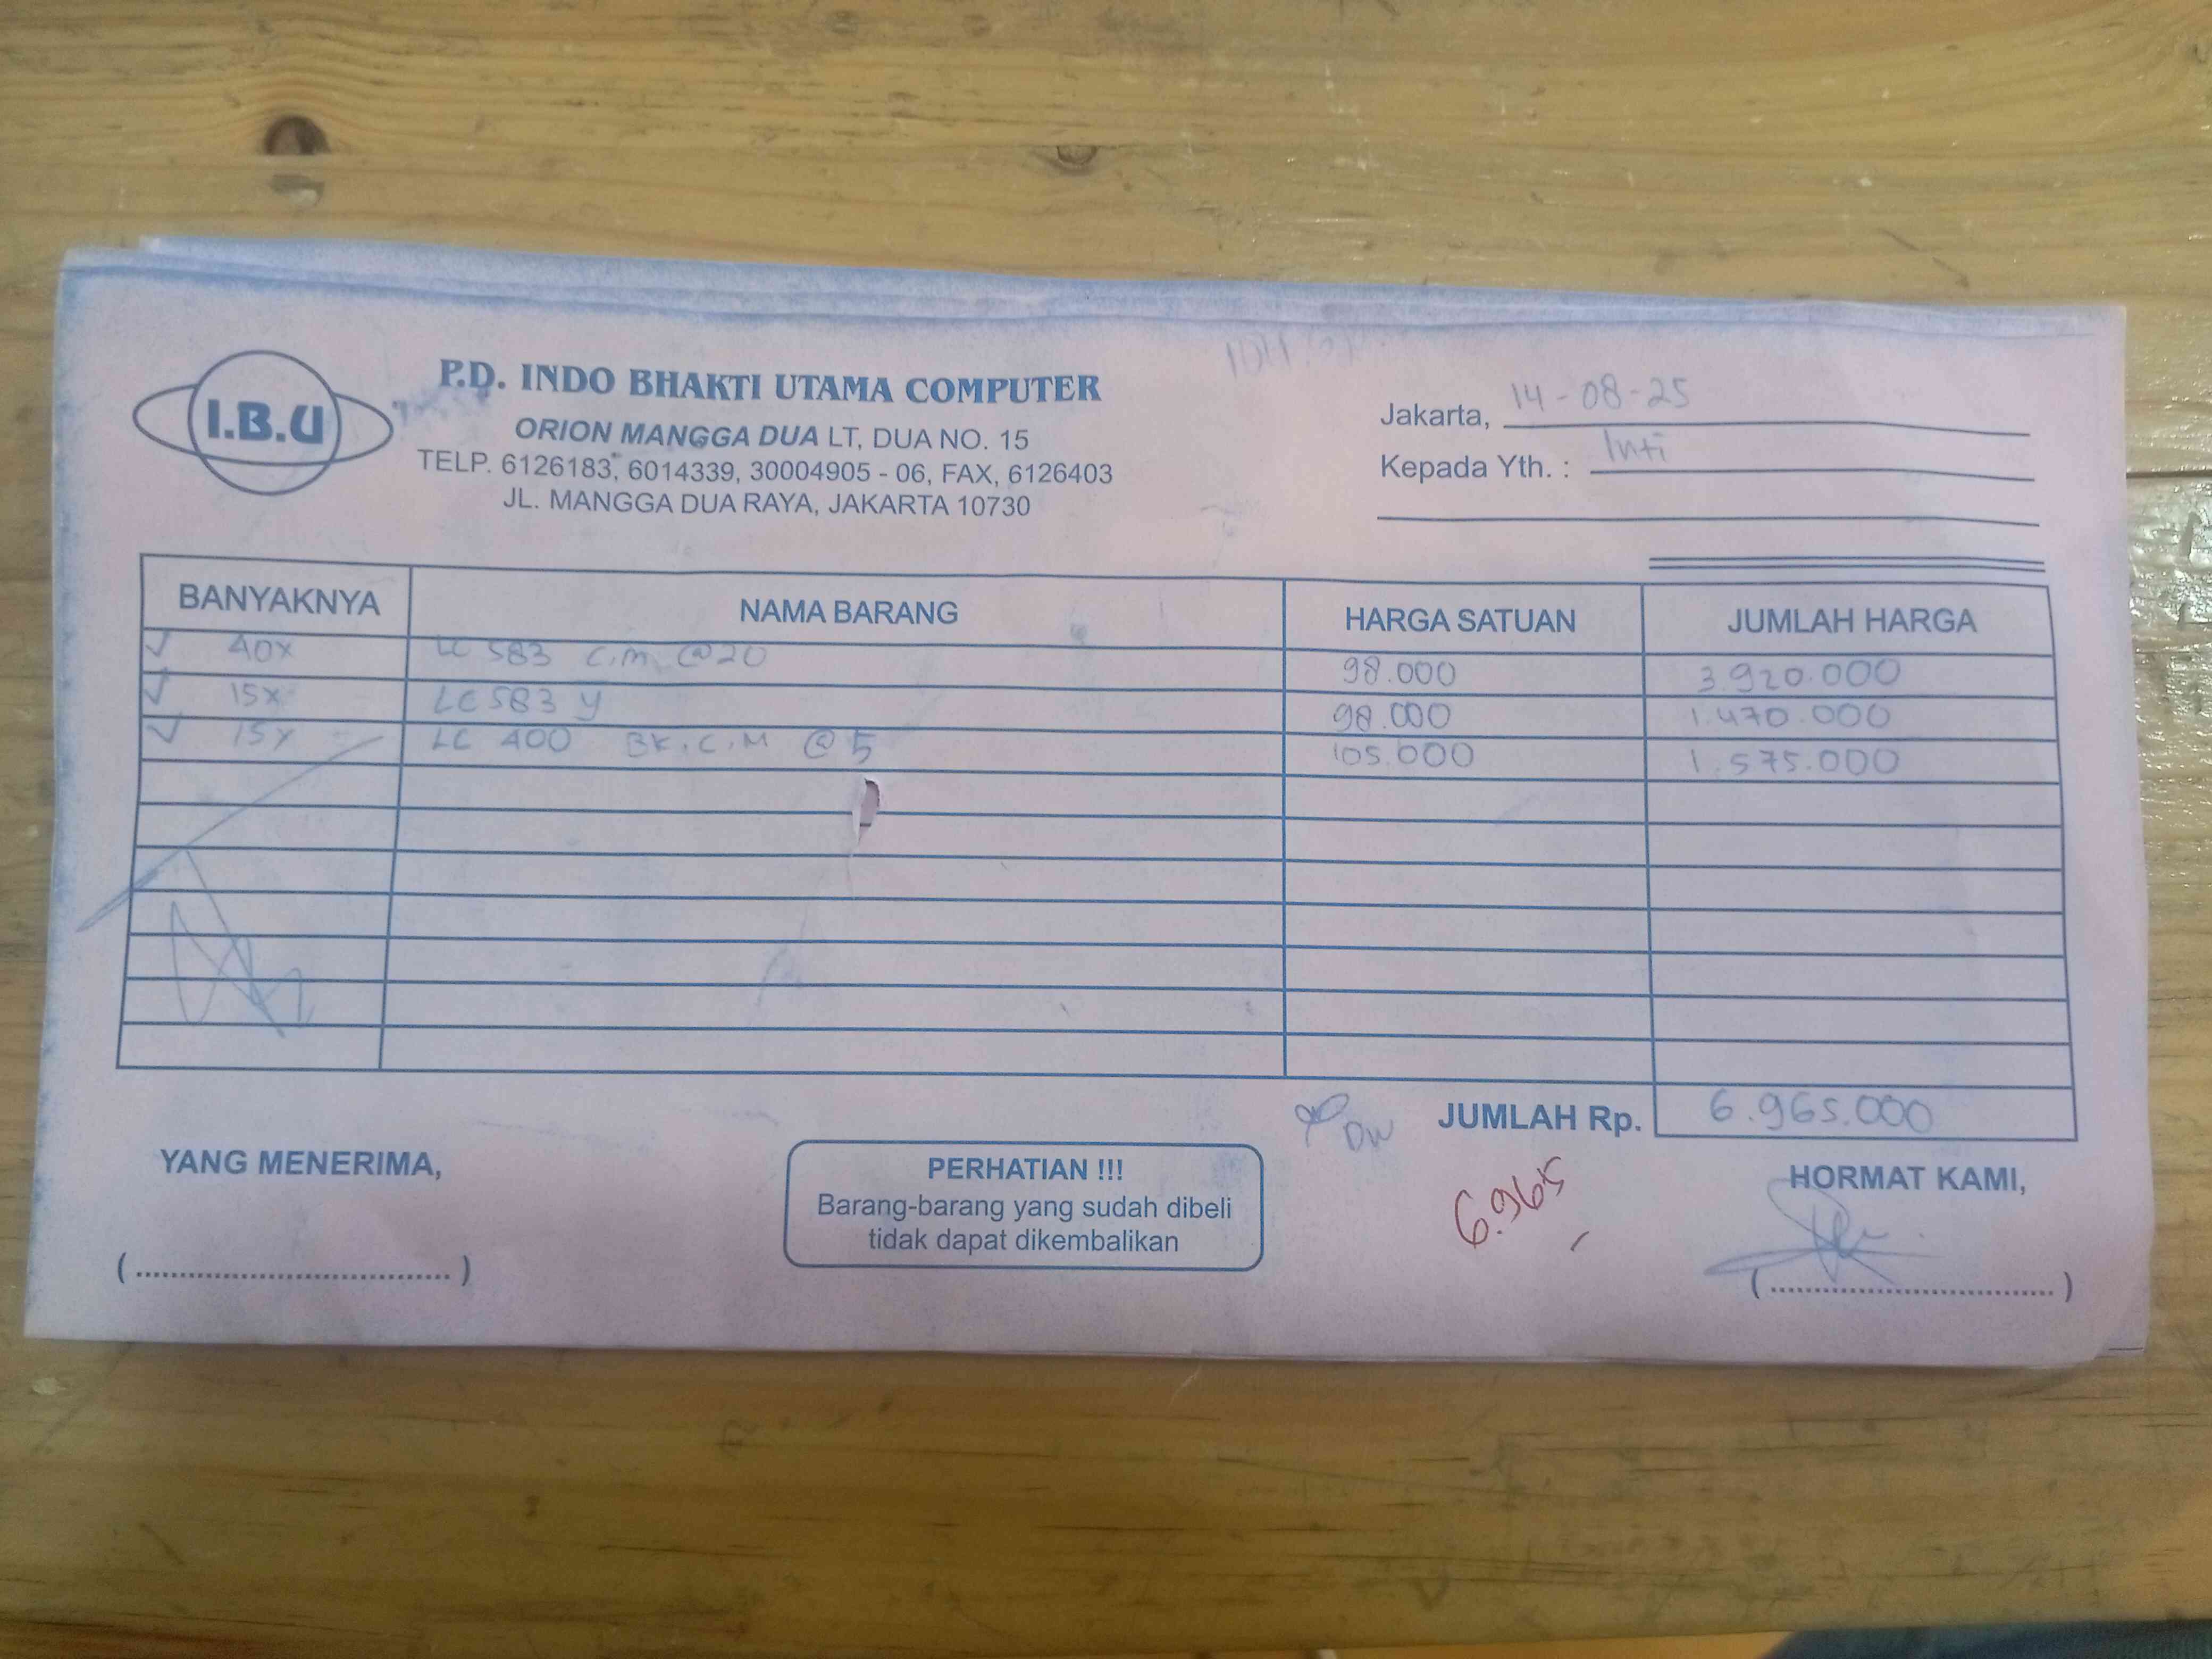 I.B.U
P.D. INDO BHAKTI UTAMA COMPUTER
ORION MANGGA DUA LT, DUA NO. 15
TELP. 6126183, 6014339, 30004905 - 06, FAX, 6126403
JL. MANGGA DUA RAYA, JAKARTA 10730
Jakarta, 14-08-25
Kepada Yth. : Inti
BANYAKNYA NAMA BARANG HARGA SATUAN JUMLAH HARGA
✓ 40x LC 583 C.M @20 98.000 3.920.000
✓ 15x LC 583 Y 98.000 1.470.000
✓ 15x LC 400 BK.C.M @5 105.000 1.575.000
DW
JUMLAH Rp. 6.965.000
YANG MENERIMA,
(................................)
PERHATIAN !!!
Barang-barang yang sudah dibeli
tidak dapat dikembalikan
6.965
HORMAT KAMI,
(................................)